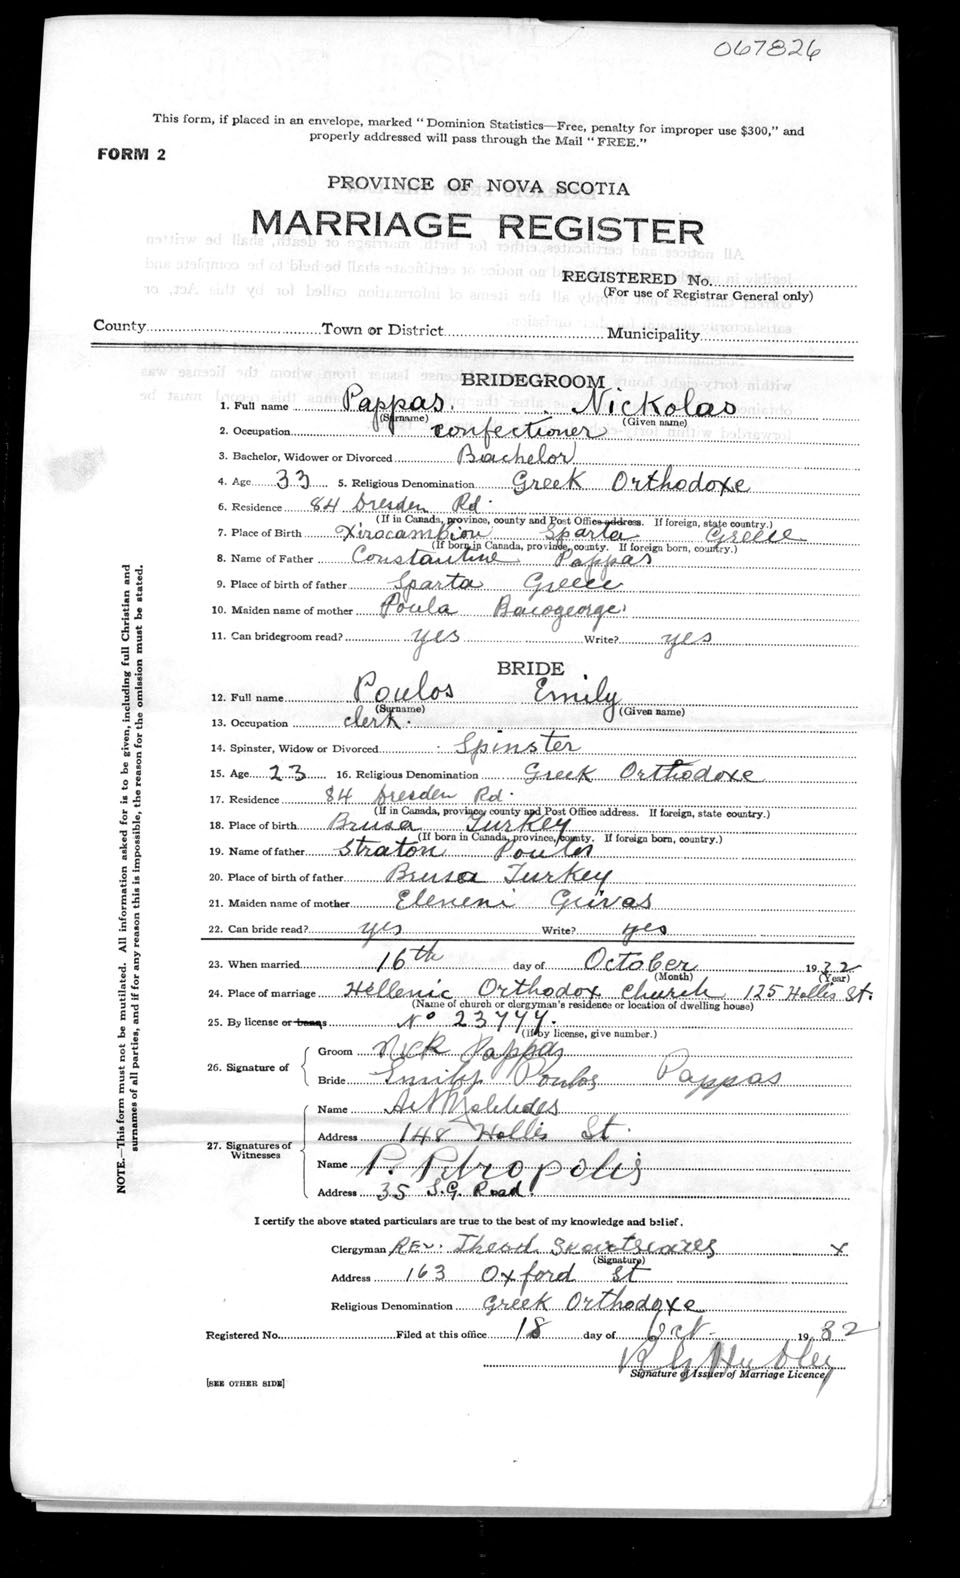 067826
This form, if placed in an envelope, marked "Dominion Statistics—Free, penalty for improper use $300," and
properly addressed will pass through the Mail "FREE."
FORM 2
PROVINCE OF NOVA SCOTIA
MARRIAGE REGISTER
REGISTERED No.
(For use of Registrar General only)
County Town or District Municipality
BRIDEGROOM
1. Full name Pappas. Nickolas
(Surname) (Given name)
2. Occupation confectioner
3. Bachelor, Widower or Divorced Bachelor
4. Age 33 5. Religious Denomination Greek Orthodoxe
6. Residence 84 Dresden Rd.
(If in Canada, province, county and Post Office address. If foreign, state country.)
7. Place of Birth Xirocambion Sparta Greece
(If born in Canada, province, county. If foreign born, country.)
8. Name of Father Constantine Pappas
9. Place of birth of father Sparta Greece
10. Maiden name of mother Poula Bacogeorge
11. Can bridegroom read? yes Write? yes
BRIDE
12. Full name Poulos Emily
(Surname) (Given name)
13. Occupation clerk.
14. Spinster, Widow or Divorced Spinster
15. Age 23 16. Religious Denomination Greek Orthodoxe
17. Residence 84 Dresden Rd.
(If in Canada, province, county and Post Office address. If foreign, state country.)
18. Place of birth Brusa Turkey
(If born in Canada, province, county. If foreign born, country.)
19. Name of father Straton Poulos
20. Place of birth of father Brusa Turkey
21. Maiden name of mother Eleneni Grivas
22. Can bride read? yes Write? yes
23. When married 16th day of October 1932
(Month) (Year)
24. Place of marriage Hellenic Orthodox Church 125 Hollis St.
(Name of church or clergyman's residence or location of dwelling house)
25. By license or banns No 23444.
(If by license, give number.)
26. Signature of
Groom Nick Pappas
Bride Emily Poulos Pappas
27. Signatures of Witnesses
Name
Address 148 Hollis St.
Name P. Petropolis
Address 35 S.G. Road.
I certify the above stated particulars are true to the best of my knowledge and belief.
Clergyman Rev. Theod x
(Signature)
Address 163 Oxford St
Religious Denomination Greek Orthodoxe
Registered No. Filed at this office 18 day of Oct. 1932
Signature of Issuer of Marriage Licence
[SEE OTHER SIDE]
NOTE.—This form must not be mutilated. All information asked for is to be given, including full Christian and
surnames of all parties, and if for any reason this is impossible, the reason for the omission must be stated.